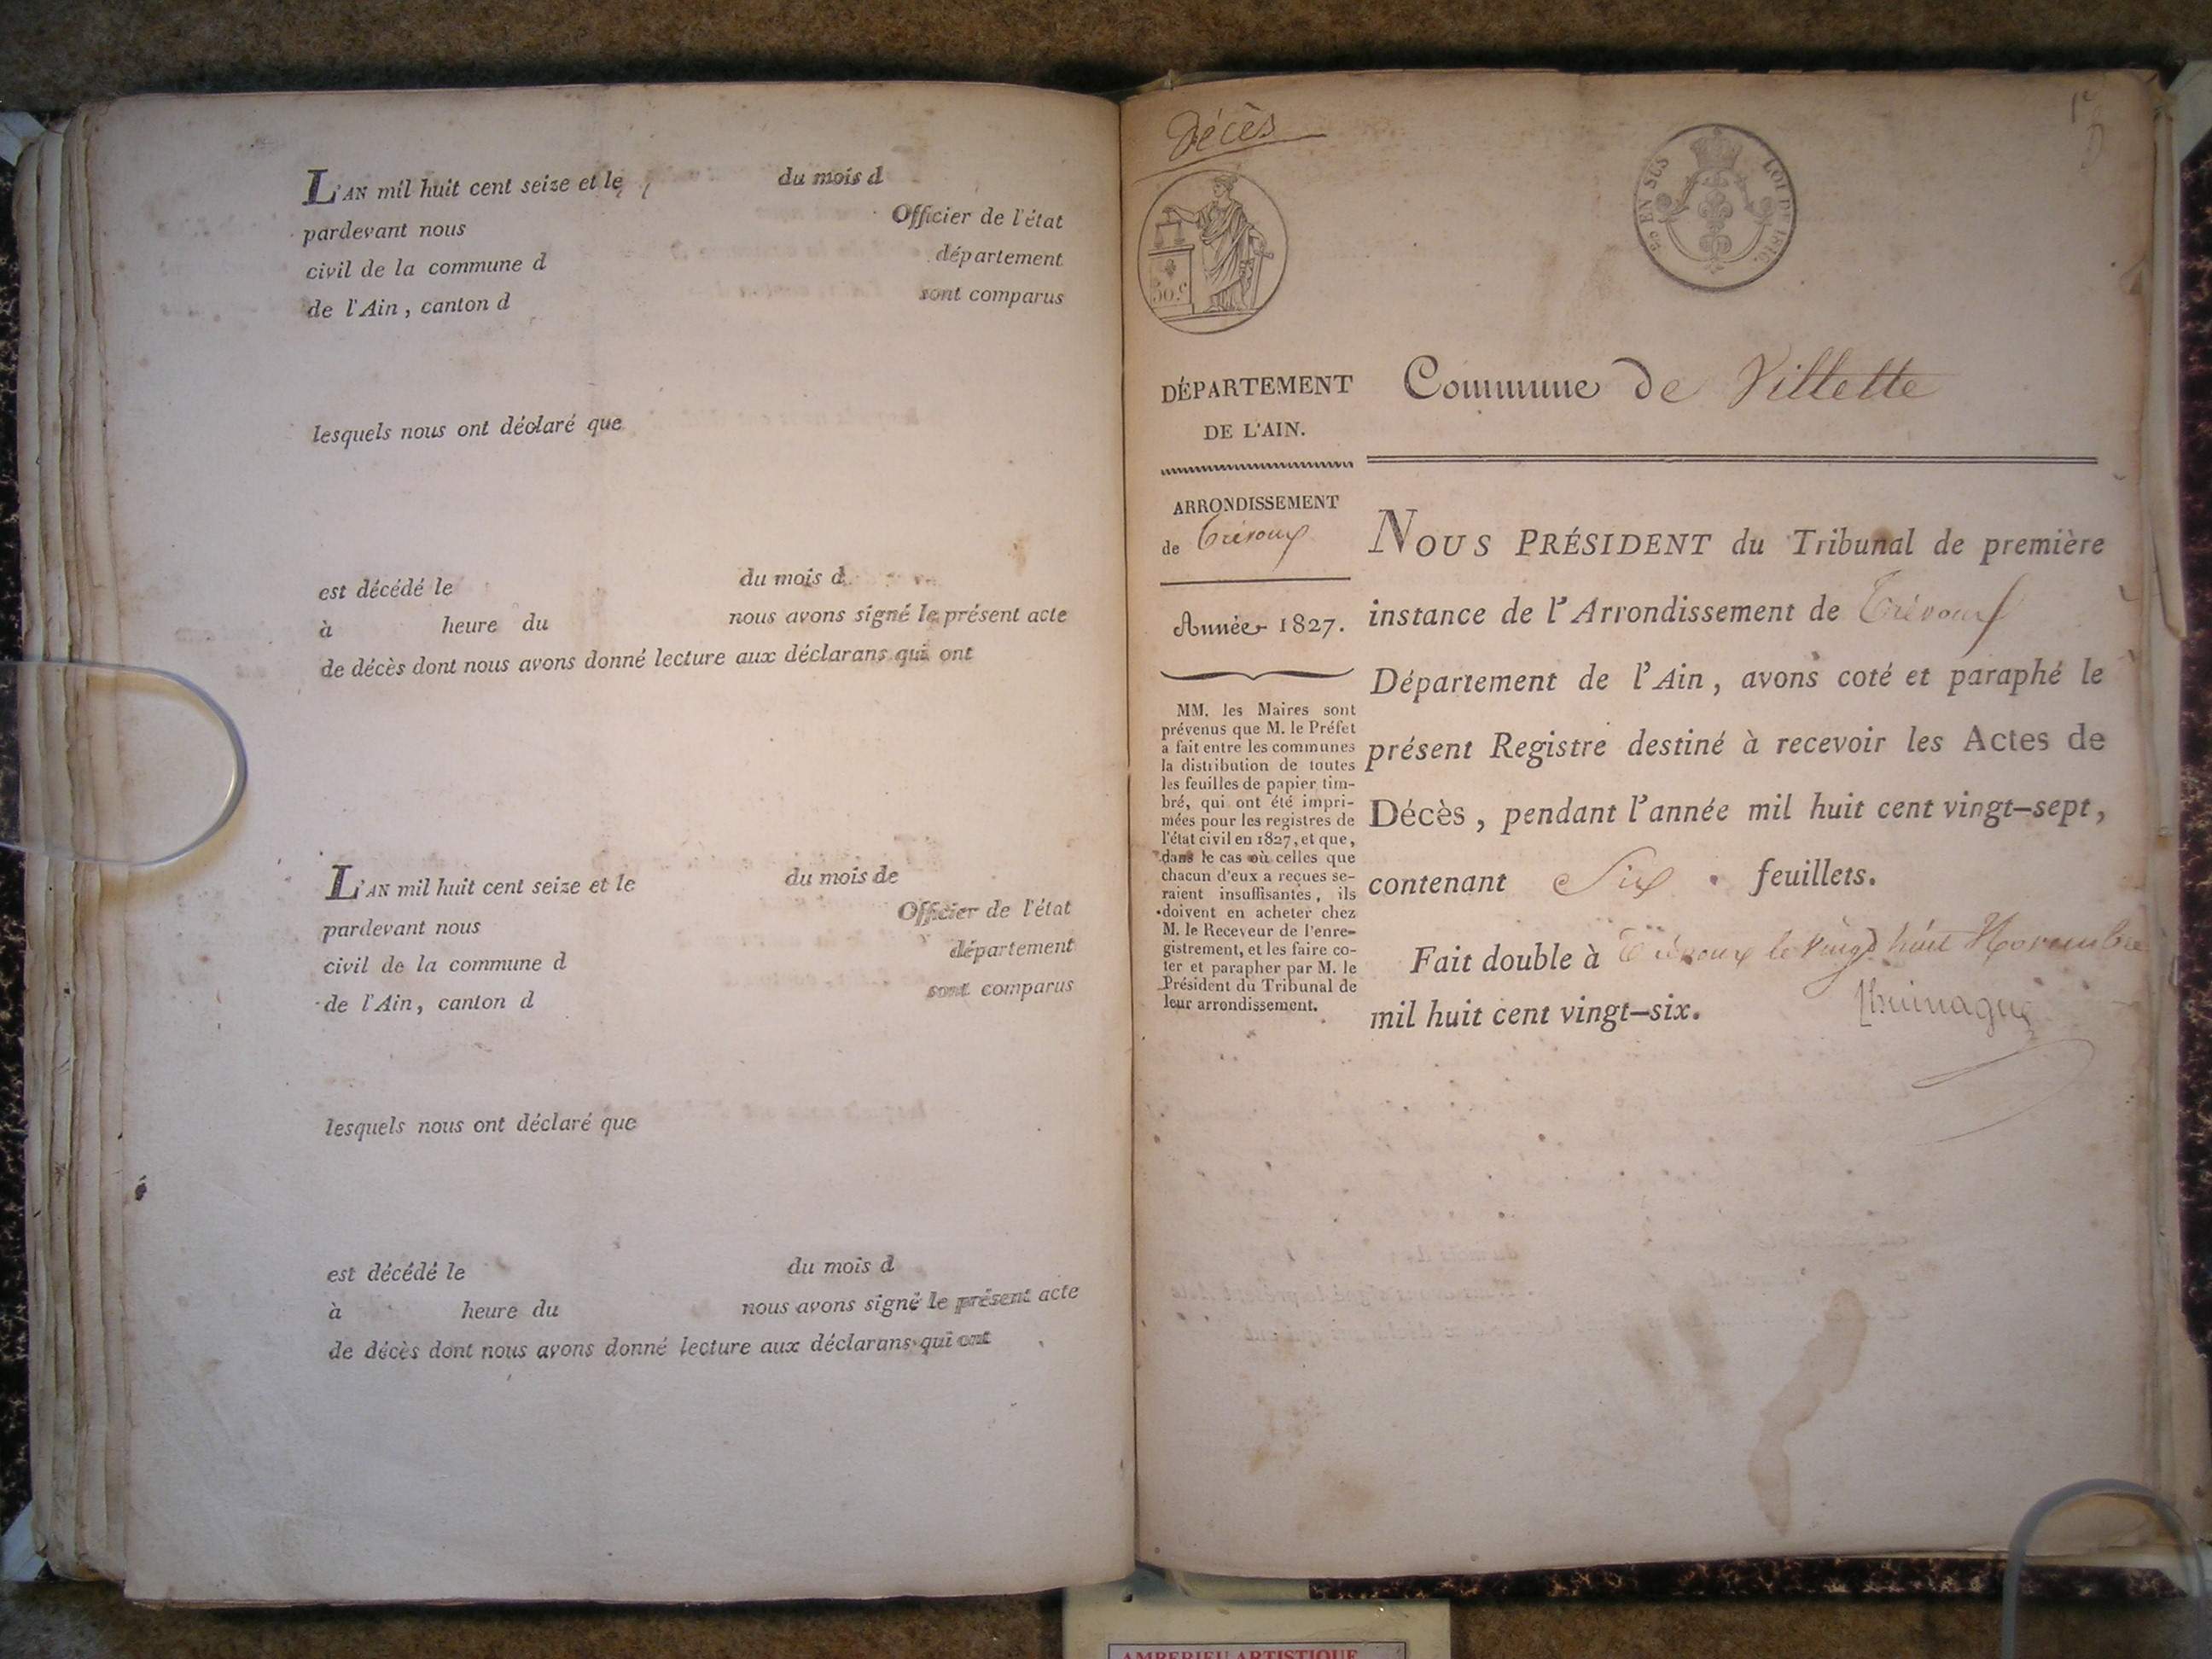 L'AN mil huit cent seize et le du mois d
pardevant nous Officier de l'état
civil de la commune d département
de l'Ain, canton d sont comparus
lesquels nous ont déclaré que
est décédé le du mois d
à heure du nous avons signé le présent acte
de décès dont nous avons donné lecture aux déclarans qui ont
L'AN mil huit cent seize et le du mois de
pardevant nous Officier de l'état
civil de la commune d département
de l'Ain, canton d sont comparus
lesquels nous ont déclaré que
est décédé le du mois d
à heure du nous avons signé le présent acte
de décès dont nous avons donné lecture aux déclarans qui ont
Décès
50.c
EN SUS LOI DE 1816.
DÉPARTEMENT
DE L'AIN.
ARRONDISSEMENT
de Trévoux
Année 1827.
MM. les Maires sont
prévenus que M. le Préfet
a fait entre les communes
la distribution de toutes
les feuilles de papier tim-
bré, qui ont été impri-
mées pour les registres de
l'état civil en 1827, et que,
dans le cas où celles que
chacun d'eux a reçues se-
raient insuffisantes, ils
doivent en acheter chez
M. le Receveur de l'enre-
gistrement, et les faire co-
ter et parapher par M. le
Président du Tribunal de
leur arrondissement.
Commune de Villette
NOUS PRÉSIDENT du Tribunal de première
instance de l'Arrondissement de Trévoux
Département de l'Ain, avons coté et paraphé le
présent Registre destiné à recevoir les Actes de
Décès, pendant l'année mil huit cent vingt-sept,
contenant Six feuillets.
Fait double à Trévoux le vingt huit Novembre
mil huit cent vingt-six.
AMBERIEU ARTISTIQUE